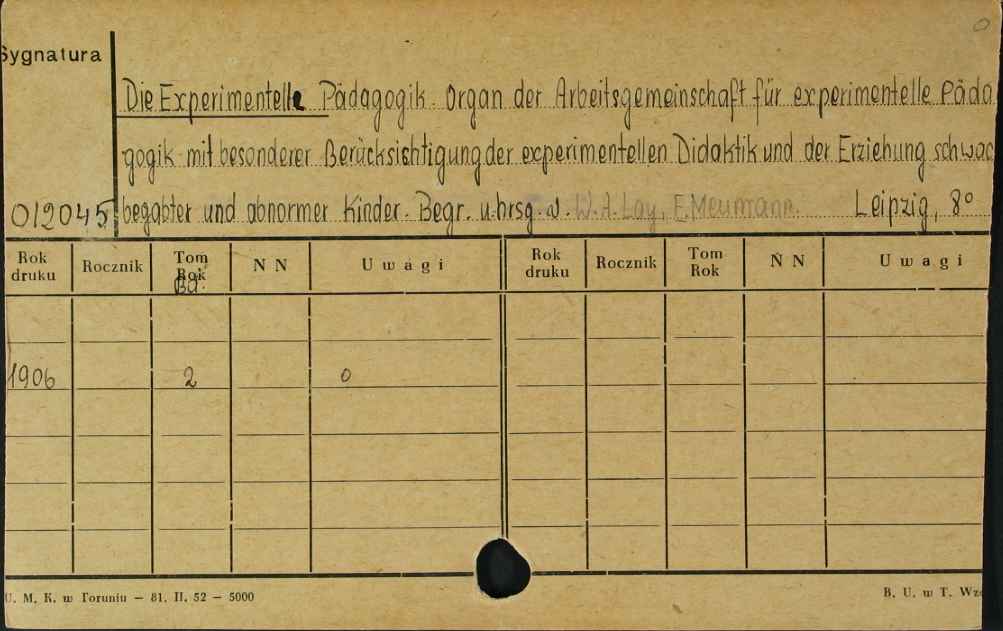 Sygnatura
Die Experimentelle Pädagogik. Organ der Arbeitsgemeinschaft für experimentelle Päda
gogik mit besonderer Berücksichtigung der experimentellen Didaktik und der Erziehung schwac
012045 begabter und abnormer Kinder. Begr. u. hrsg. v. W. A. Lay, E. Meumann. Leipzig, 8°
Rok druku Rocznik Tom Rok Bd. NN Uwagi Rok druku Rocznik Tom Rok NN Uwagi
1906 2 0
U. M. K. w Toruniu — 81. II. 52 — 5000 B. U. w T. Wzó